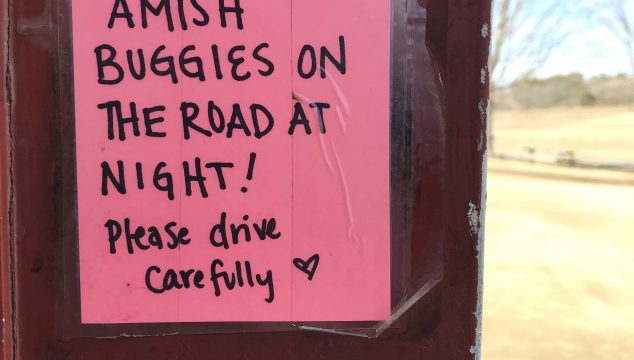 AMISH
BUGGIES ON
THE ROAD AT
NIGHT!
Please drive
carefully ♡